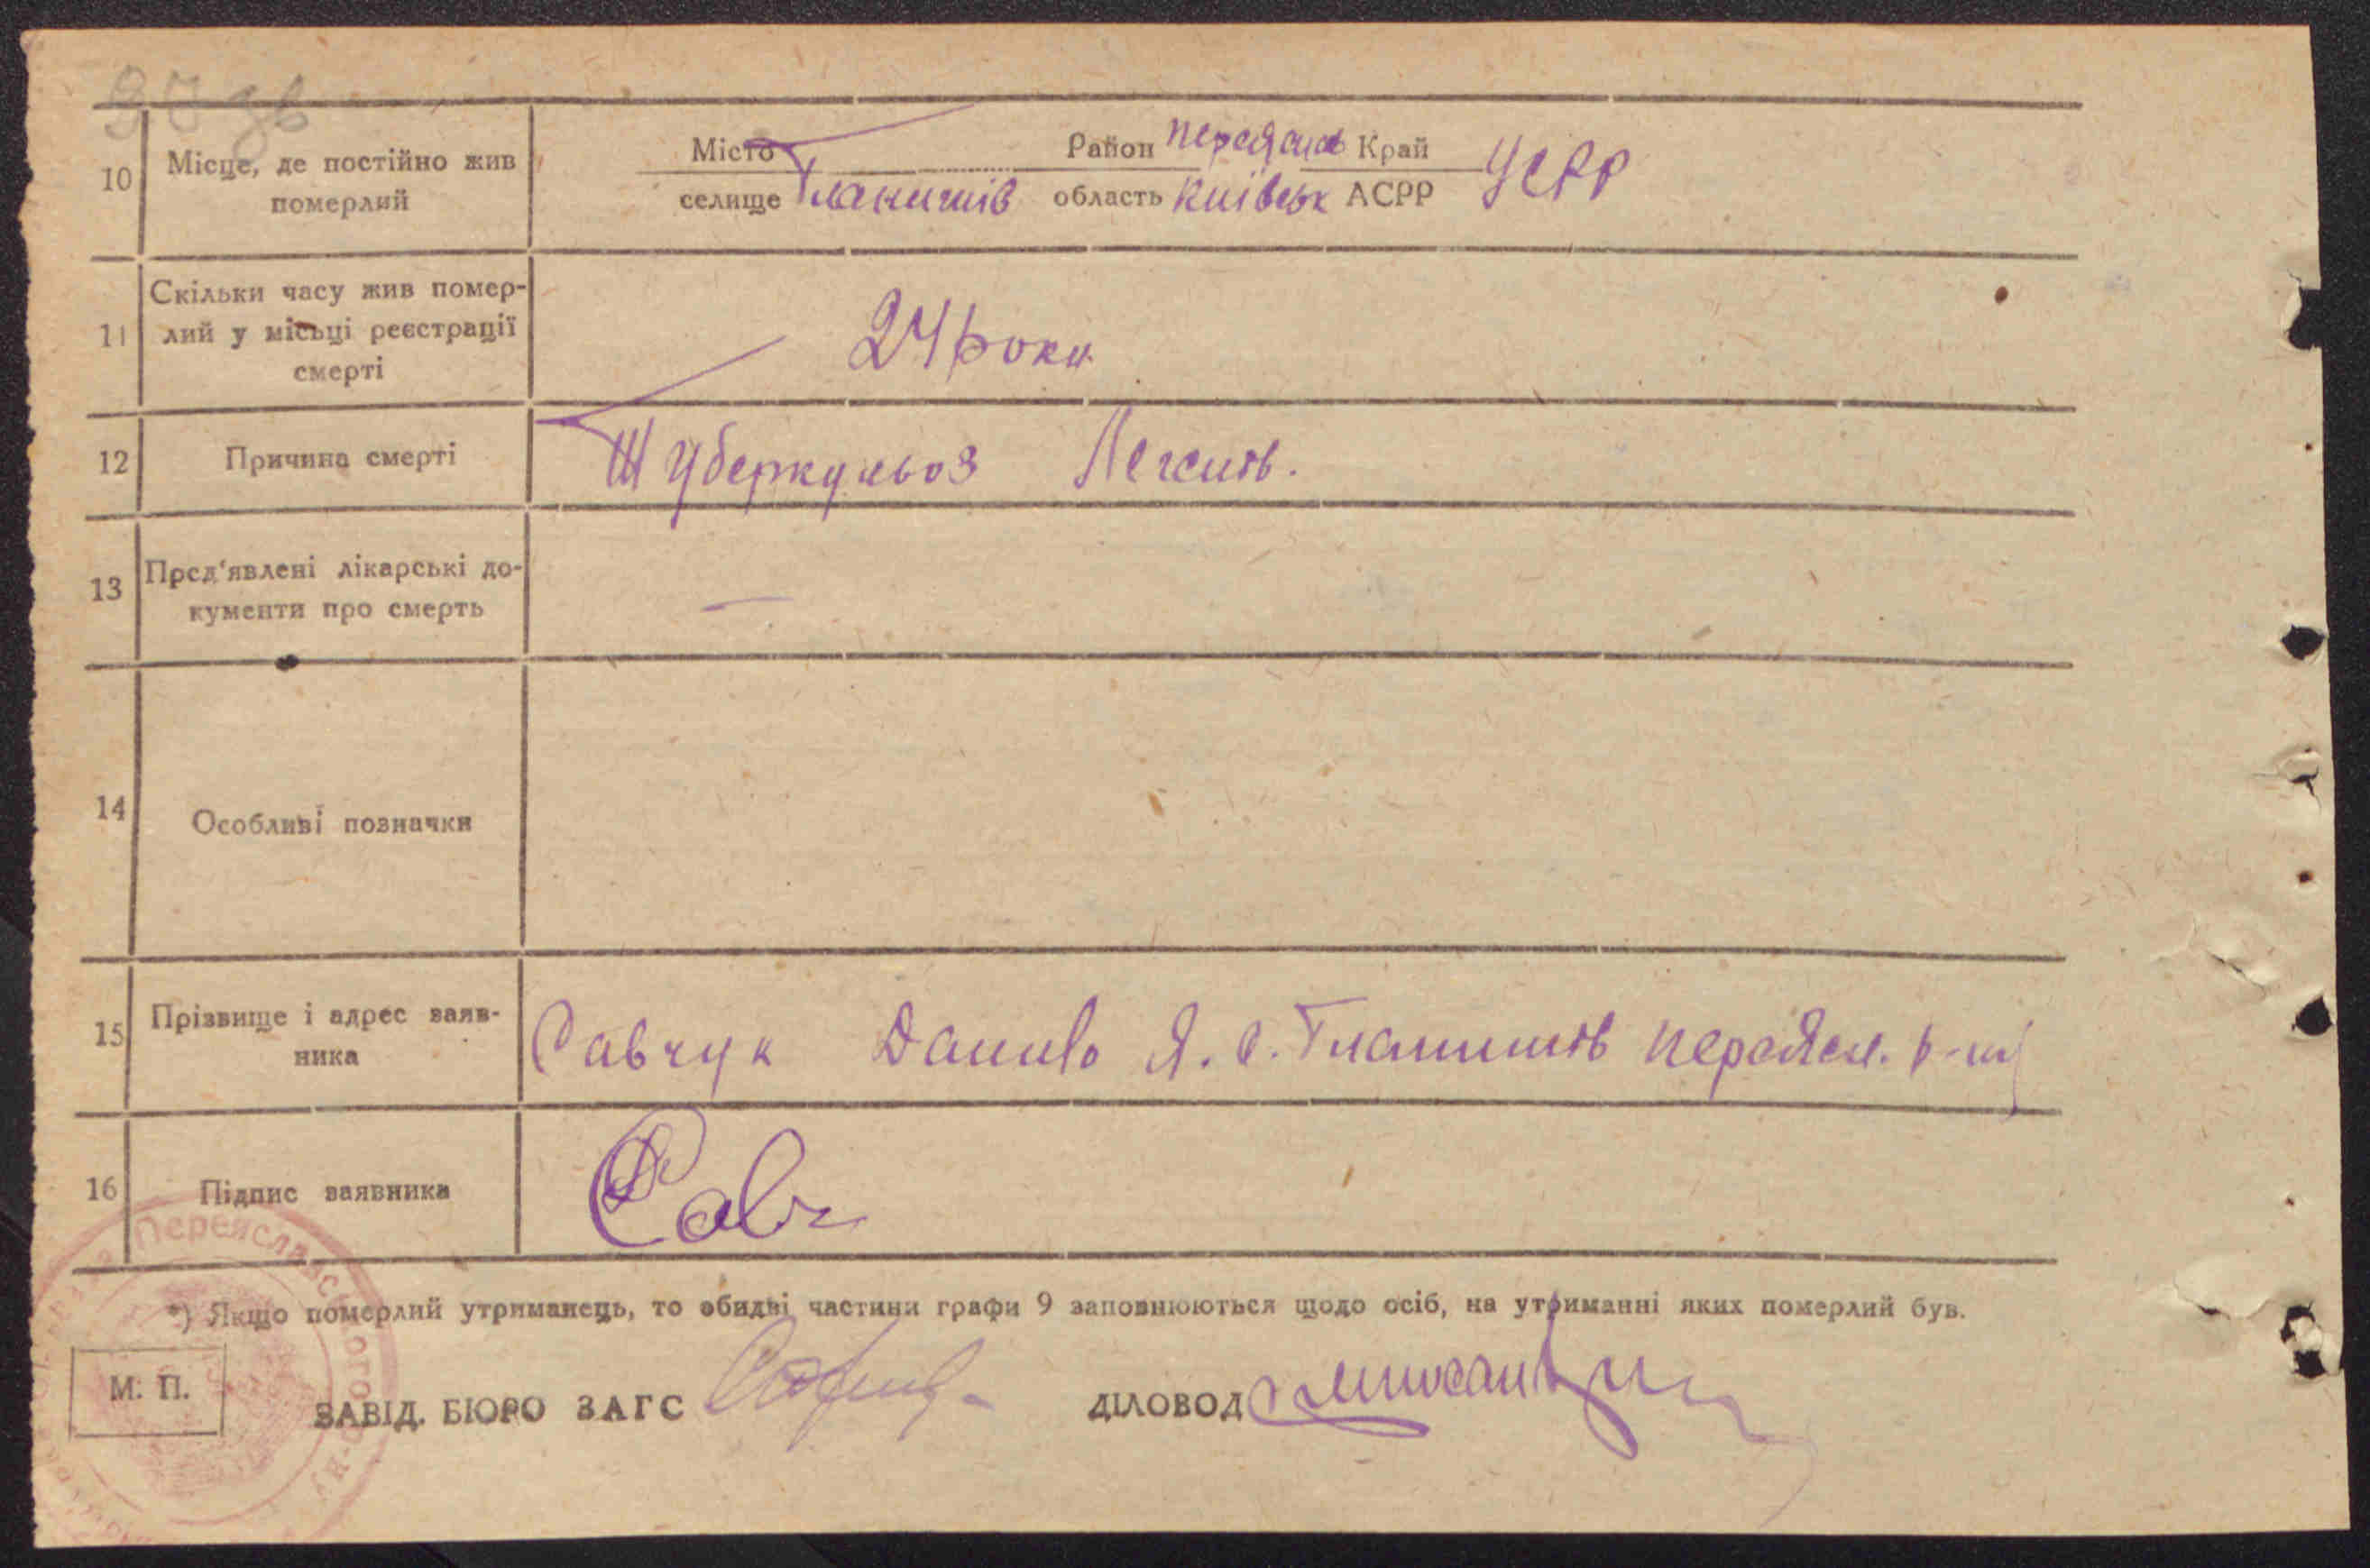 90 зв
10 Місце, де постійно жив померлий
Місто Район Переяслав Край УСРР
селище Гланишів область Київськ АСРР
11 Скільки часу жив помер-
лий у місьці реєстрації
смерті
24 роки
12 Причина смерті Туберкульоз Легенів.
13 Пред'явлені лікарські до-
кументи про смерть —
14 Особливі позначки
15 Прізвище і адрес заяв-
ника
Савчук Данило Я. с. Гланишів Переясл. р-ну
16 Підпис заявника Савч
Переяславського р-ну
*) Якщо померлий утриманець, то обидві частини графи 9 заповнюються щодо осіб, на утриманні яких померлий був.
М. П.
ЗАВІД. БЮРО ЗАГС ДІЛОВОД